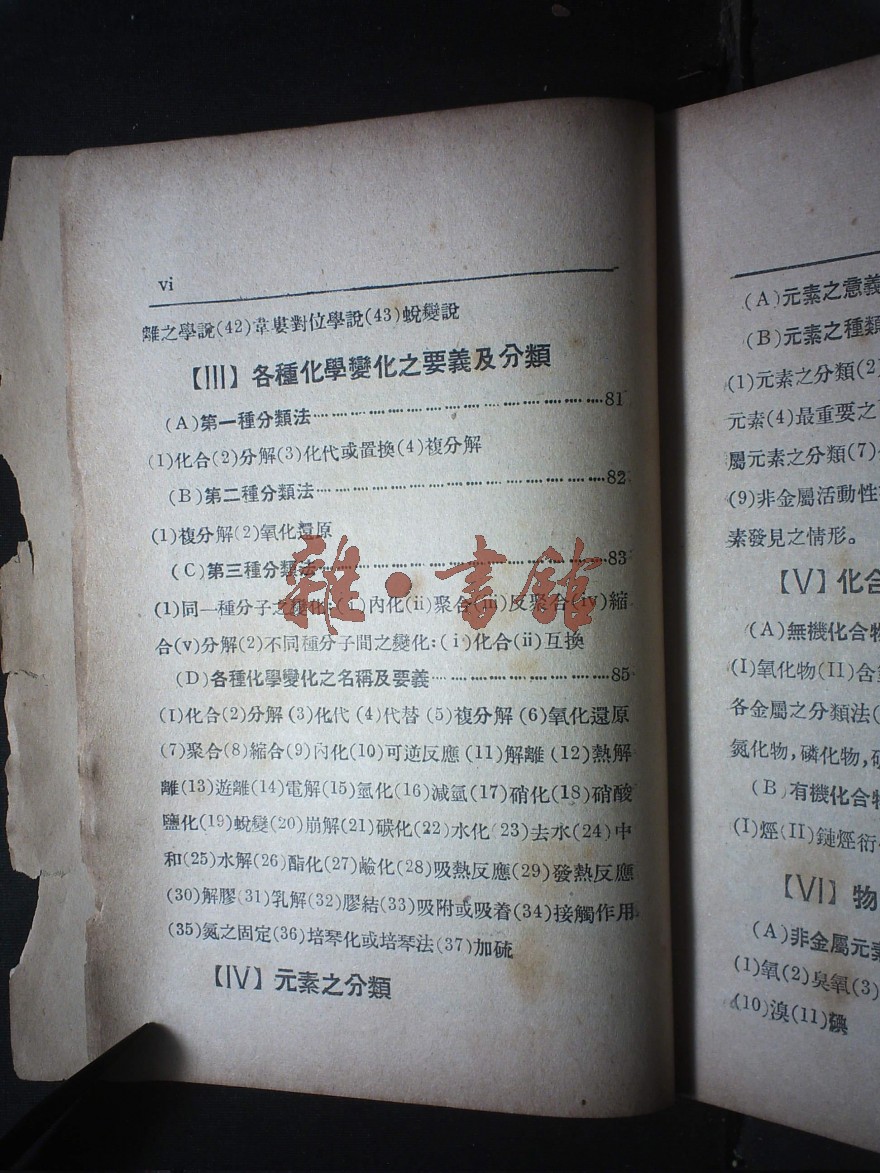 vi
離之學說(42)韋婁對位學說(43)蛻變說
【III】各種化學變化之要義及分類
(A)第一種分類法……81
(1)化合(2)分解(3)化代或置換(4)複分解
(B)第二種分類法……82
(1)複分解(2)氧化還原
(C)第三種分類法……83
(1)同一種分子之變化:(i)內化(ii)聚合(iii)反聚合(iv)縮
合(v)分解(2)不同種分子間之變化:(i)化合(ii)互換
(D)各種化學變化之名稱及要義……85
(I)化合(2)分解(3)化代(4)代替(5)複分解(6)氧化還原
(7)聚合(8)縮合(9)內化(10)可逆反應(11)解離(12)熱解
離(13)遊離(14)電解(15)氫化(16)減氫(17)硝化(18)硝酸
鹽化(19)蛻變(20)崩解(21)碳化(22)水化(23)去水(24)中
和(25)水解(26)酯化(27)鹼化(28)吸熱反應(29)發熱反應
(30)解膠(31)乳解(32)膠結(33)吸附或吸着(34)接觸作用
(35)氮之固定(36)培琴化或培琴法(37)加硫
【IV】元素之分類
雜·書館
(A)元素之意義
(B)元素之種類
(1)元素之分類(2)
元素(4)最重要之
屬元素之分類(7)
(9)非金屬活動性
素發見之情形。
【V】化合
(A)無機化合物
(I)氧化物(II)含
各金屬之分類法(
氮化物,磷化物,
(B)有機化合物
(I)烴(II)鏈烴衍
【VI】物
(A)非金屬元素
(1)氧(2)臭氧(3)
(10)溴(11)碘